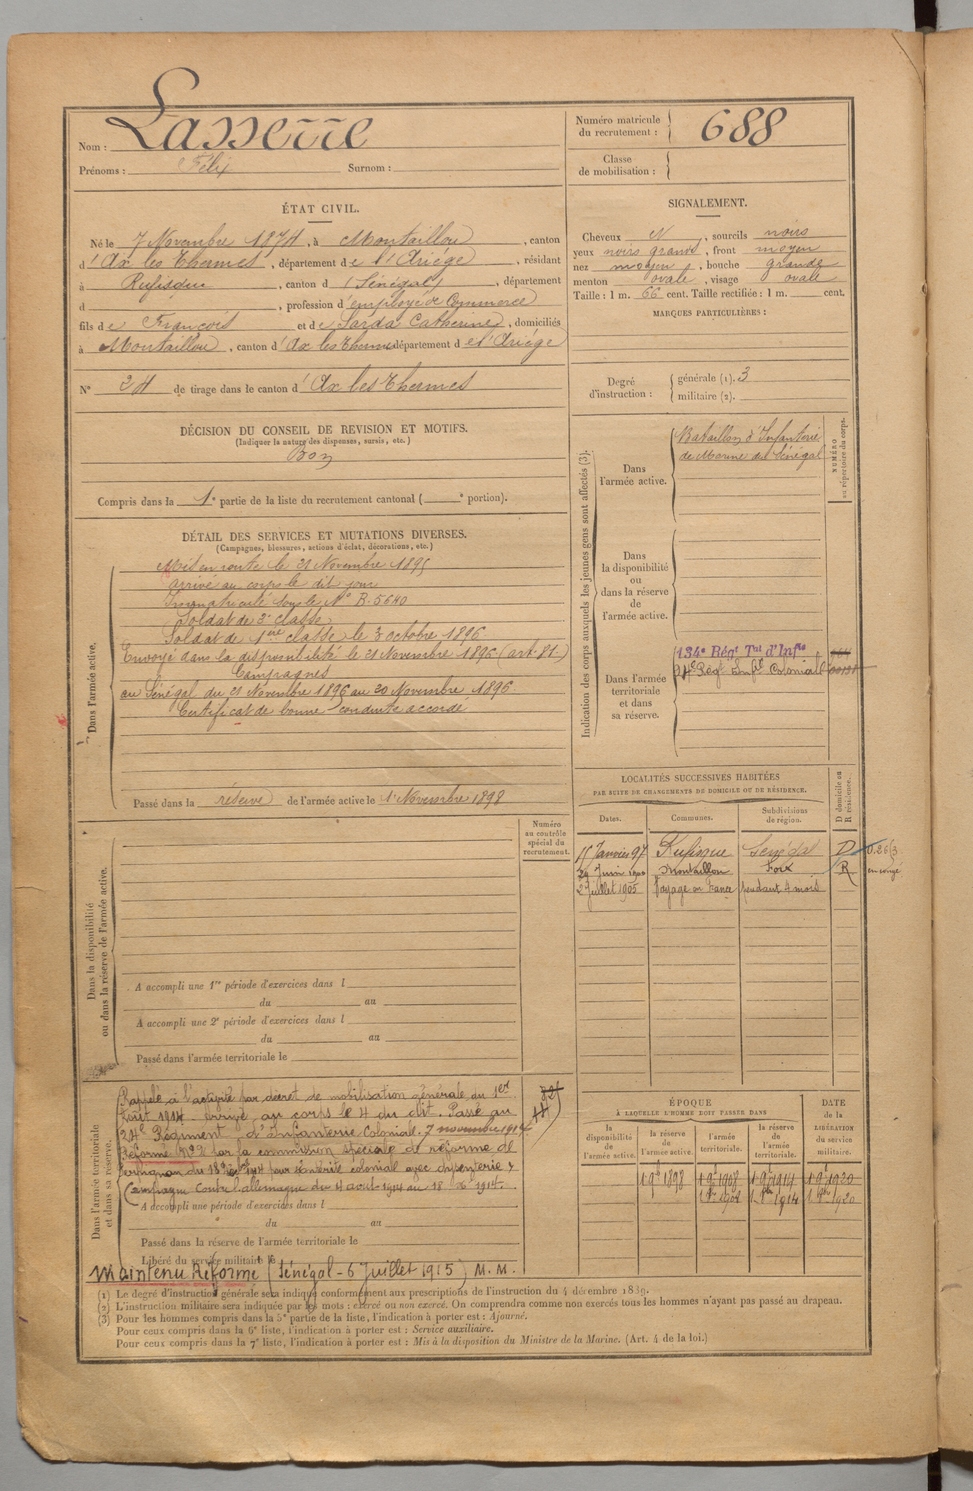 Nom : Lasserre
Prénoms : Félix Surnom :
Numéro matricule du recrutement : 688
Classe de mobilisation :
ÉTAT CIVIL.
Né le 7 Novembre 1874, à Montaillou, canton
d'Ax les Thermes, département de l'Ariège, résidant
à Rufisque, canton d (Sénégal), département
d , profession d'employé de Commerce
fils de François et de Sarda Catherine, domiciliés
à Montaillou, canton d'Ax les Thermes département de l'Ariège
N° 24 de tirage dans le canton d'Ax les Thermes
SIGNALEMENT.
Cheveux N , sourcils noirs
yeux noirs grands , front moyen
nez moyen , bouche grande
menton ovale , visage ovale
Taille : 1 m. 66 cent. Taille rectifiée : 1 m. cent.
MARQUES PARTICULIÈRES :
Degré d'instruction : générale (1). 3
militaire (2).
DÉCISION DU CONSEIL DE REVISION ET MOTIFS.
(Indiquer la nature des dispenses, sursis, etc.)
Bon
Compris dans la 1e partie de la liste du recrutement cantonal ( e portion).
DÉTAIL DES SERVICES ET MUTATIONS DIVERSES.
(Campagnes, blessures, actions d'éclat, décorations, etc.)
Dans l'armée active.
Mis en route le 21 Novembre 1895
arrivé au corps le dit jour
Immatriculé sous le N° B. 5640
Soldat de 2e classe
Soldat de 1ère classe le 3 octobre 1896
Envoyé dans la disponibilité le 21 Novembre 1896 (art. 81.)
Campagnes
au Sénégal du 21 Novembre 1896 au 20 Novembre 1896
Certificat de bonne conduite accordé
Passé dans la réserve de l'armée active le 1 Novembre 1898
Indication des corps auxquels les jeunes gens sont affectés (3).
NUMÉRO au répertoire du corps.
Dans l'armée active.
Bataillon d'Infanterie
de Marine du Sénégal
Dans la disponibilité ou dans la réserve de l'armée active.
Dans l'armée territoriale et dans sa réserve.
134e Régt Tal d'Infie
24e Régt Infie Colonial
LOCALITÉS SUCCESSIVES HABITÉES
PAR SUITE DE CHANGEMENTS DE DOMICILE OU DE RÉSIDENCE.
D domicile ou R résidence.
Dates. Communes. Subdivisions de région.
15 Janvier 97 Rufisque Sénégal D
29 Juin 1900 Montaillou Foix R
2 Juillet 1905 Voyage en France pendant 4 mois
Numéro au contrôle spécial du recrutement.
Dans la disponibilité ou dans la réserve de l'armée active.
A accompli une 1re période d'exercices dans l
du au
A accompli une 2e période d'exercices dans l
du au
Passé dans l'armée territoriale le
Dans l'armée territoriale et dans sa réserve.
Rappelé à l'activité par décret de mobilisation générale du 1er
Août 1914 arrivé au corps le 4 du dit. Passé au
24e Régiment d'Infanterie Coloniale. 7 novembre 1914
Réformé N° 2 par la commission spéciale de réforme de
Perpignan du 18 1914 pour entérite colonial avec dysenterie
Campagne contre l'allemagne du 4 août 1914 au 18 Xe 1914.
A accompli une période d'exercices dans l
du au
Passé dans la réserve de l'armée territoriale le
Libéré du service militaire le
maintenu Réformé (Sénégal - 6 Juillet 1915) M. M.
ÉPOQUE
À LAQUELLE L'HOMME DOIT PASSER DANS
DATE de la LIBÉRATION du service militaire.
la disponibilité de l'armée active. la réserve de l'armée active. l'armée territoriale. la réserve de l'armée territoriale.
1 9e 1898 1 9e 1908 1 9e 1914 1 9e 1920
(1) Le degré d'instruction générale sera indiqué conformément aux prescriptions de l'instruction du 4 décembre 1889.
(2) L'instruction militaire sera indiquée par les mots : exercé ou non exercé. On comprendra comme non exercés tous les hommes n'ayant pas passé au drapeau.
(3) Pour les hommes compris dans la 5e partie de la liste, l'indication à porter est : Ajourné.
Pour ceux compris dans la 6e liste, l'indication à porter est : Service auxiliaire.
Pour ceux compris dans la 7e liste, l'indication à porter est : Mis à la disposition du Ministre de la Marine. (Art. 4 de la loi.)